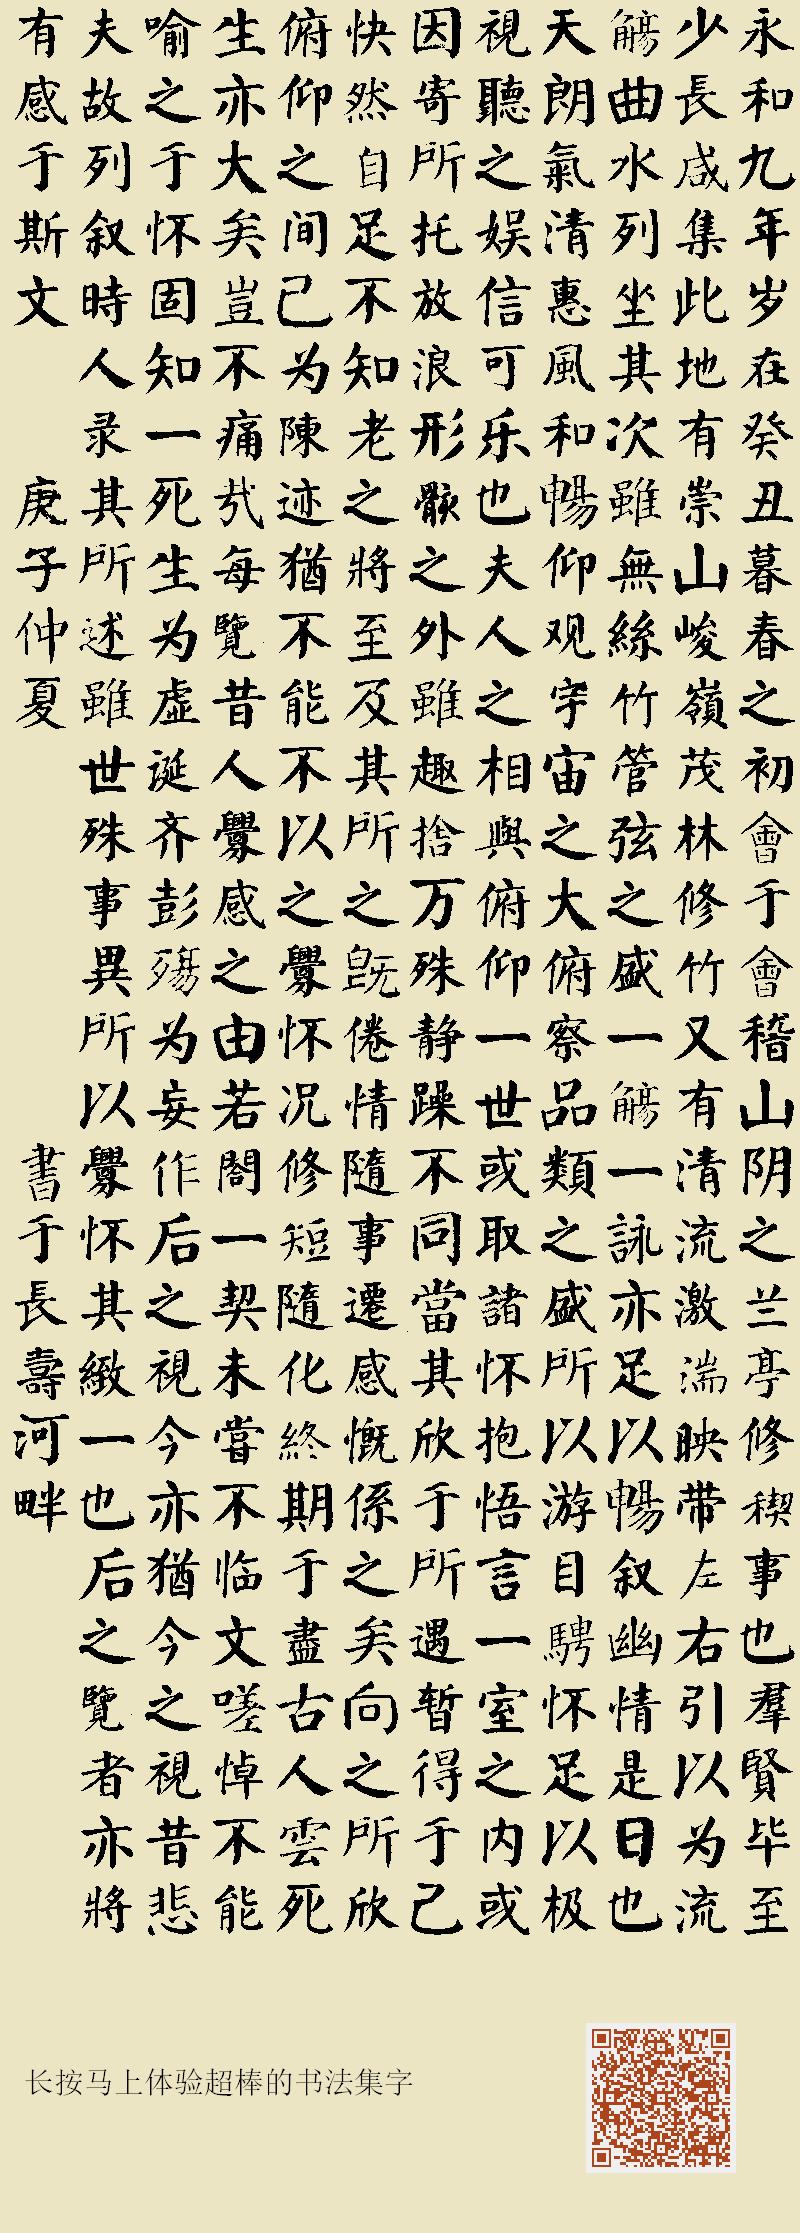 永和九年岁在癸丑暮春之初會于會稽山阴之兰亭修稧事也羣賢毕至
少長咸集此地有崇山峻嶺茂林修竹又有清流激湍映带左右引以为流
觴曲水列坐其次雖無絲竹管弦之盛一觴一詠亦足以暢叙幽情是日也
天朗氣清惠風和暢仰观宇宙之大俯察品類之盛所以游目騁怀足以极
視聽之娱信可乐也夫人之相與俯仰一世或取諸怀抱悟言一室之内或
因寄所托放浪形骸之外雖趣捨万殊静躁不同當其欣于所遇暂得于己
快然自足不知老之將至及其所之既倦情隨事遷感慨係之矣向之所欣
俯仰之间已为陳迹猶不能不以之興怀况修短隨化終期于盡古人雲死
生亦大矣豈不痛哉每覽昔人興感之由若閤一契未嘗不临文嗟悼不能
喻之于怀固知一死生为虚诞齐彭殤为妄作后之視今亦猶今之視昔悲
夫故列叙時人录其所述雖世殊事異所以興怀其緻一也后之覽者亦將
有感于斯文 庚子仲夏 書于長壽河畔
长按马上体验超棒的书法集字